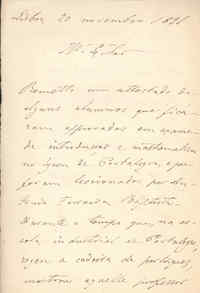 Lisboa 20 novembro 1891
Remetto um attestado de
alguns alumnos que fica-
ram approvados em exame
de introducção e mathematica
no lyceu de Portalegre, e que
foram leccionados por
Ferreira Baptista.
Durante o tempo que, na es-
cola industrial de Portalegre,
regeu a cadeira de portuguez,
mostrou aquelle professor